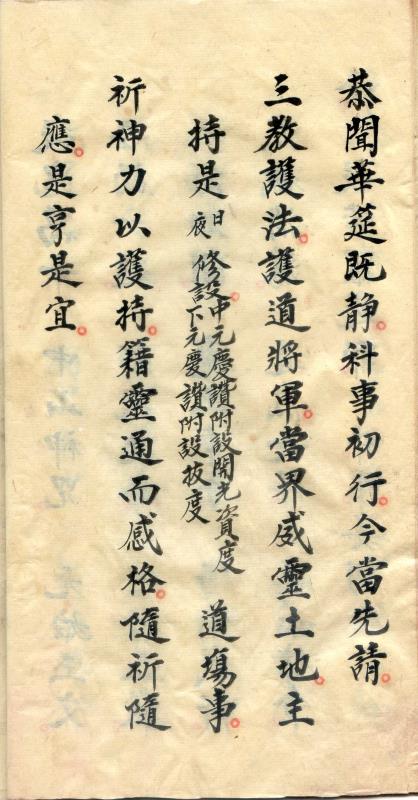 恭聞華筵既静。科事初行。今當先請。
三教護法。護道將軍。當界威靈土地。主
持是
日
夜
修設。
中元慶讚附設開光資度
下元慶讚附設拔度
道塲事。
祈神力以護持。籍靈通而感格。隨祈隨
應。是亨是宜。